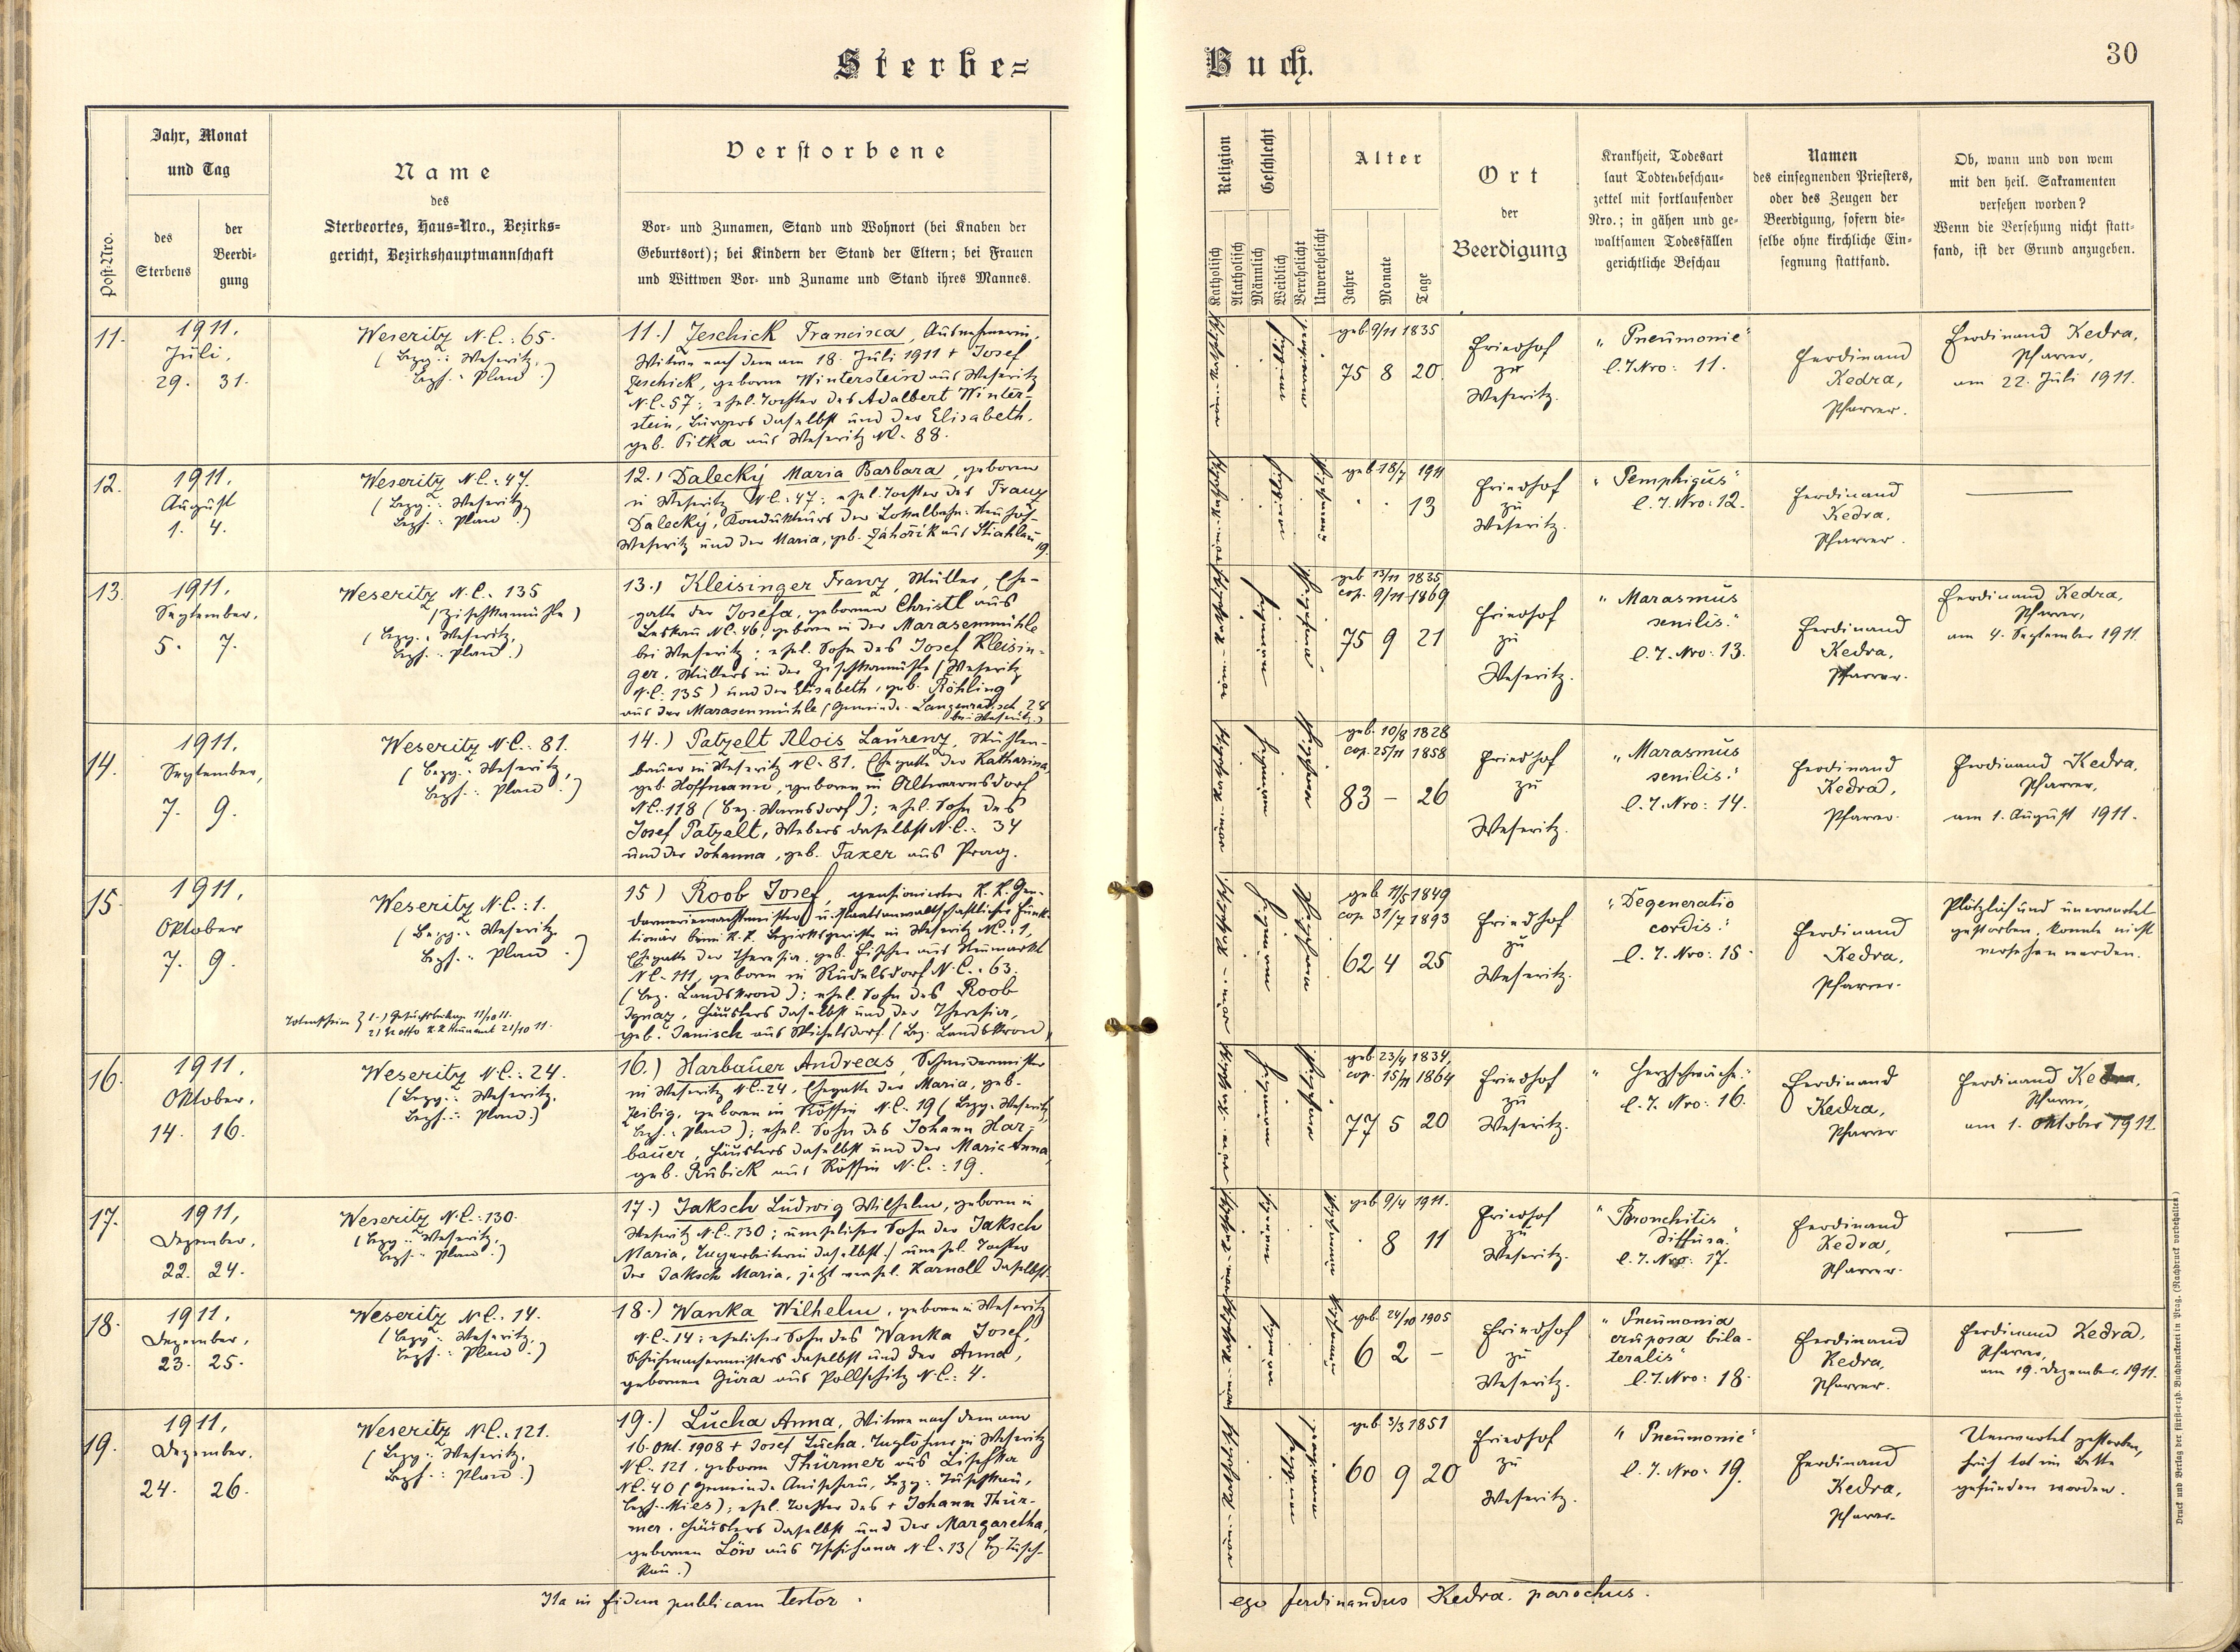 Sterbe=
Buch.
30
Post-Nro.
Jahr, Monat
und Tag
des
Sterbens
der
Beerdi-
gung
Name
des
Sterbeortes, Haus=Nro., Bezirks=
gericht, Bezirkshauptmannschaft
Verstorbene
Vor= und Zunamen, Stand und Wohnort (bei Knaben der
Geburtsort); bei Kindern der Stand der Eltern; bei Frauen
und Wittwen Vor= und Zuname und Stand ihres Mannes.
Religion
Katholisch
Akatholisch
Geschlecht
Männlich
Weiblich
Verehelicht
Unverehelicht
Alter
Jahre
Monate
Tage
Ort
der
Beerdigung
Krankheit, Todesart
laut Todtenbeschau-
zettel mit fortlaufender
Nro.; in gähen und ge-
waltsamen Todesfällen
gerichtliche Beschau
Namen
des einsegnenden Priesters,
oder des Zeugen der
Beerdigung, sofern die-
selbe ohne kirchliche Ein-
segnung stattfand.
Ob, wann und von wem
mit den heil. Sakramenten
versehen worden?
Wenn die Versehung nicht statt-
fand, ist der Grund anzugeben.
11.
1911.
Juli.
29. 31.
Weseritz N.C.: 65.
(Bezg.: Weseritz,
Bezh.: Plan.)
11.) Jeschick Francisca, Ausnehmerin,
Witwe nach dem am 18. Juli 1911 + Josef
Jeschick, geborne Winterstein aus Weseritz
N.C. 57; ehel. Tochter des Adalbert Winter-
stein, Bürgers daselbst und der Elisabeth,
geb. Pitka aus Weseritz NC. 88.
geb. 9/11 1835
75 8 20
Friedhof
zu
Weseritz.
"Pneumonie"
l. T. Nro: 11.
Ferdinand
Kedra,
Pfarrer.
Ferdinand Kedra,
Pfarrer,
am 22. Juli 1911.
12.
1911.
August
1. 4.
Weseritz N.C.: 47.
(Bezg.: Weseritz,
Bezh.: Plan.)
12.) Dalecký Maria Barbara, geboren
in Weseritz N.C.: 47; ehel. Tochter des Franz
Dalecký, Kondukteurs der Lokalbahn Neuhof-
Weseritz und der Maria, geb. Záhořik aus Stiahlau
19.
geb. 18/7 1911
13
Friedhof
zu
Weseritz.
"Pemphigus"
l. T. Nro: 12.
Ferdinand
Kedra,
Pfarrer.
13.
1911.
September.
5. 7.
Weseritz N.C. 135
(Zischkamühle)
(Bezg.: Weseritz,
Bezh.: Plan.)
13.) Kleisinger Franz, Müller, Ehe-
gatte der Josefa, gebornen Christl aus
Leskau NC. 46; geboren in der Marasenmühle
bei Weseritz; ehel. Sohn des Josef Kleisin-
ger, Müllers in der Zischkamühle (Weseritz
N.C. 135) und der Elisabeth, geb. Röhling
aus der Marasenmühle (Gemeinde Langenradisch 28
bei Weseritz.)
geb. 13/11 1835
cop. 9/11 1869
75 9 21
Friedhof
zu
Weseritz.
"Marasmus
senilis."
l. T. Nro: 13.
Ferdinand
Kedra,
Pfarrer.
Ferdinand Kedra,
Pfarrer,
am 4. September 1911.
14.
1911.
September,
7. 9.
Weseritz N.C.: 81.
(Bezg.: Weseritz,
Bezh.: Plan.)
14.) Patzelt Alois Laurenz,
bauer in Weseritz NC. 81. Ehegatte der Katharina,
geb. Hoffmann, geboren in Altwarnsdorf
NC. 118 (Bez. Warnsdorf); ehel. Sohn des
Josef Patzelt, Webers daselbst N.C.: 34
und der Johanna, geb. Taxer aus Prag.
geb. 10/8 1828
cop. 25/11 1858
83 – 26
Friedhof
zu
Weseritz.
"Marasmus
senilis."
l. T. Nro: 14.
Ferdinand
Kedra,
Pfarrer.
Ferdinand Kedra,
Pfarrer,
am 1. August 1911.
15.
1911.
Oktober
7. 9.
Weseritz N.C.: 1.
(Bezg.: Weseritz.
Bezh.: Plan.)
15) Roob Josef, pensionierter K. K. Gen-
darmeriewachtmeister u. staatsanwaltschaftlicher Funk-
tionär beim K. K. Bezirksgerichte in Weseritz NC.: 1,
Ehegatte der Theresia, geb. Fischer aus Neumarkt
NC. 111, geboren in Rudelsdorf N.C.: 63.
(Bez. Landskron); ehel. Sohn des Roob
Ignaz, Häuslers daselbst und der Theresia,
geb. Janisch aus Michelsdorf (Bez. Landskron)
geb. 11/5 1849
cop. 31/7 1893
62 4 25
Friedhof
zu
Weseritz.
"Degeneratio
cordis."
l. T. Nro: 15.
Ferdinand
Kedra,
Pfarrer.
Plötzlich und unerwartet
gestorben, konnte nicht
versehen werden.
16.
1911.
Oktober.
14. 16.
Weseritz N.C.: 24.
(Bezg.: Weseritz.
Bezh.: Plan.)
16.) Harbauer Andreas, Schneidermeister
in Weseritz N.C. 24, Ehegatte der Maria, geb.
Zeibig, geboren in Kössin N.C. 19 (Bezg. Weseritz,
Bezh.: Plan); ehel. Sohn des Johann Har-
bauer, Häuslers daselbst und der Maria Anna,
geb. Rubick aus Kössin N.C.: 19.
geb. 23/4 1834.
cop. 15/11 1864
77 5 20
Friedhof
zu
Weseritz.
"Herzschwäche."
l. T. Nro: 16.
Ferdinand
Kedra,
Pfarrer
Ferdinand Kedra,
Pfarrer,
am 1. Oktober 1911.
17.
1911,
Dezember.
22. 24.
Weseritz N.C.: 130.
(Bezg.: Weseritz,
Bezh.: Plan.)
17.) Jaksch Ludwig Wilhelm, geboren in
Weseritz N.C. 130; unehelicher Sohn der Jaksch
Maria, daselbst; unehel. Tochter
der Jaksch Maria, jetzt verehel. Karnoll daselbst.
geb. 9/4 1911.
8 11
Friedhof
zu
Weseritz.
"Bronchitis
diffusa."
l. T. Nro: 17.
Ferdinand
Kedra,
Pfarrer.
18.
1911.
Dezember,
23. 25.
Weseritz N.C. 14.
(Bezg.: Weseritz,
Bezh.: Plan.)
18.) Wanka Wilhelm, geboren in Weseritz
N.C. 14; ehelicher Sohn des Wanka Josef,
Schuhmachermeisters daselbst und der Anna,
gebornen Gura aus Pollschitz N.C.: 4.
geb. 24/10 1905
6 2 –
Friedhof
zu
Weseritz.
"Pneumonia
cruposa bila-
teralis"
l. T. Nro: 18.
Ferdinand
Kedra,
Pfarrer.
Ferdinand Kedra,
Pfarrer,
am 19. Dezember 1911.
19.
1911,
Dezember.
24. 26.
Weseritz N.C. 121.
(Bezg.: Weseritz,
Bezh.: Plan.)
19.) Lucha Anna, Witwe nach dem am
16. Okt. 1908 + Josef Lucha, Taglöhner in Weseritz
NC. 121, geborne Thürmer aus Lischka
NC. 40 (Gemeinde Anischau, Bezg.: Tuschkau,
Bezh. Mies); ehel. Tochter des + Johann Thür-
mer, Häuslers daselbst und der Margaretha,
gebornen Löw aus Tschihana N.C. 13 (Bz. Tusch-
kau.)
geb. 3/3 1851
60 9 20
Friedhof
zu
Weseritz.
"Pneumonie"
l. T. Nro: 19.
Ferdinand
Kedra,
Pfarrer.
Unerwartet gestorben,
früh tot im Bette
gefunden worden.
Ita in fidem publicam testor.
ego Ferdinandus Kedra. parochus.
Druck und Verlag der fürst-erzb. Buchdruckerei in Prag. (Nachdruck vorbehalten.)